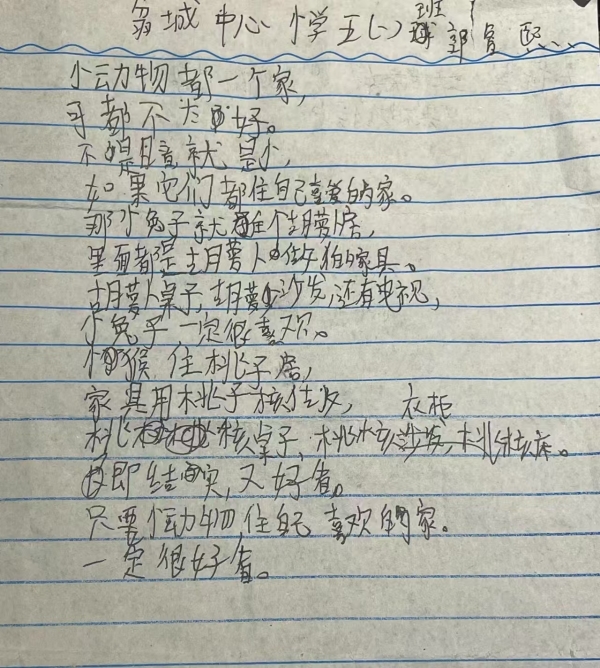 城中心小学五(一)班
小动物都一个家,
可都不太好。
不是暗就是小,
如果它们都住自己喜爱的家。
那小兔子就住个胡萝卜房,
里面都是胡萝卜做的家具。
胡萝卜桌子,胡萝卜沙发,还有电视,
小兔子一定很喜欢。
小猴住桃子房,
家具用桃子核做,
衣柜
桃核桌子,桃核沙发,桃核床。
即结实,又好看。
只要小动物住自己喜欢的家。
一定很好看。